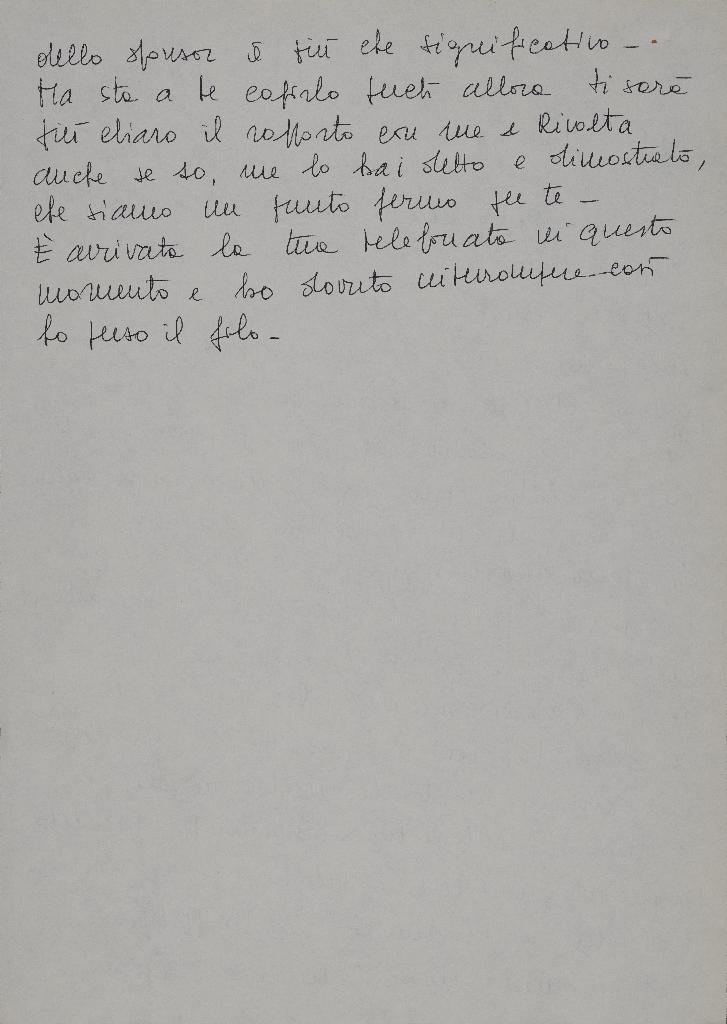 dello sponsor è più che significativo –
Ma sta a te capirlo perché allora ti sarà
più chiaro il rapporto con me e Rivolta
anche se so, me lo hai detto e dimostrato,
che siamo un punto fermo per te –
È arrivata la tua telefonata in questo
momento e ho dovuto interrompere – così
ho perso il filo –